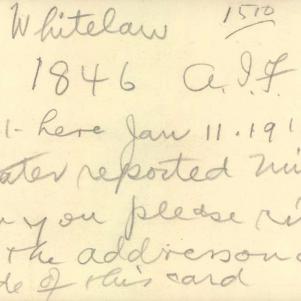 1510
Whitelaw
1846 A.I.F
here Jan 11. 191
ater reported Mi
you please
the address on
de of this card